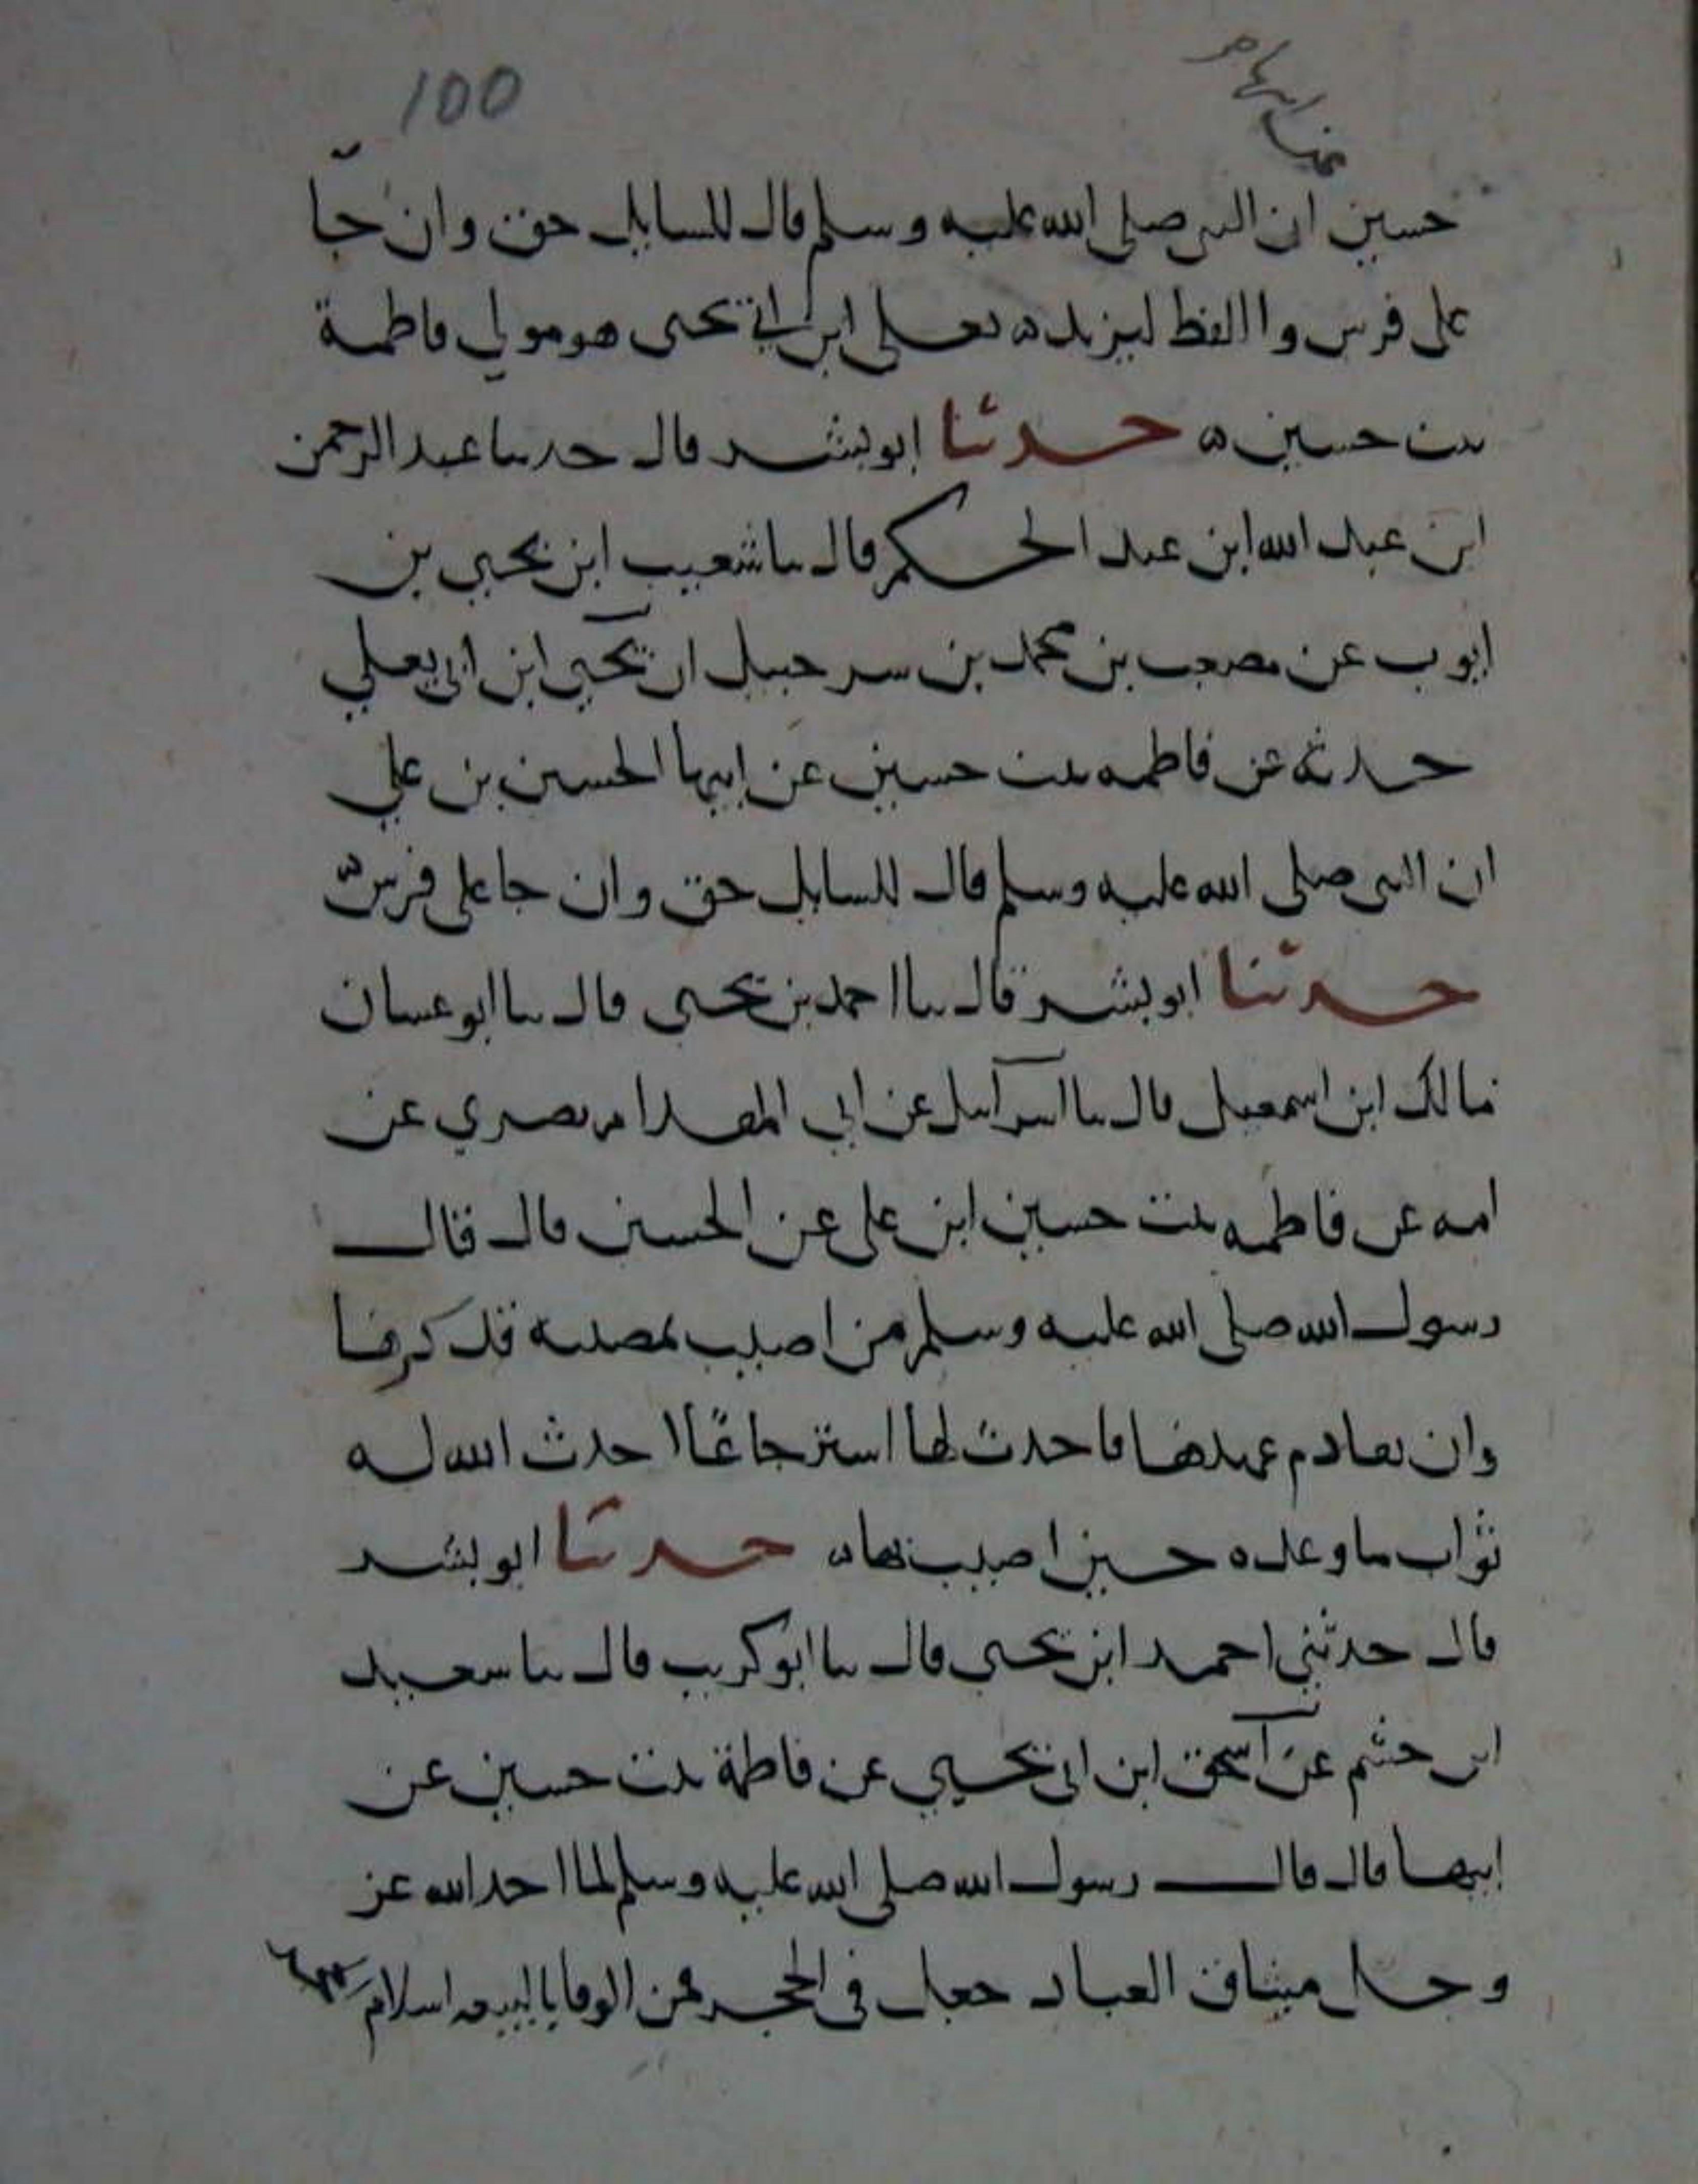 100
حسين ان النبي صلى الله عليه وسلم قال للسايل حق وان جا
على فرس واالفظ ليزيد ه يعلى ابن ابي يحيى هو مولي فاطمة
بنت حسين ه حدثنا ابو بشر قال حدثنا عبد الرحمن
ابن عبد الله ابن عبد الحكم قال ثنا شعيب ابن يحيي بن
ايوب عن مصعب بن محمد بن سرحبيل ان يحيي ابن ابي يعلي
حدثه عن فاطمه بنت حسين عن ابيها الحسين بن علي
ان النبي صلى الله عليه وسلم قال للسايل حق وان جا على فرس ه
حدثنا ابو بشر قال ثنا احمد بن يحيى قال ثنا ابو غسان
مالك ابن اسمعيل قال ثنا اسرآييل عن ابي المقدام بصري عن
امه عن فاطمه بنت حسين ابن على عن الحسين قال قال
رسول الله صلى الله عليه وسلم من اصيب بمصيبه فذكرها
وان تقادم عهدها فاحدث لها استرجاعًا احدث الله له
ثواب ما وعده حين اصيب بها ه حدثنا ابو بشر
قال حدثني احمد ابن يحيى قال ثنا ابو كريب قال ثنا سعيد
ابن خثم عن اسحق ابن ابي يحيي عن فاطمة بنت حسين عن
ابيها قال قال رسول الله صلى الله عليه وسلم لما اخذ الله عز
وجل ميثاق العباد جعل في الحجر فمن الوفا بالبيعه استلام